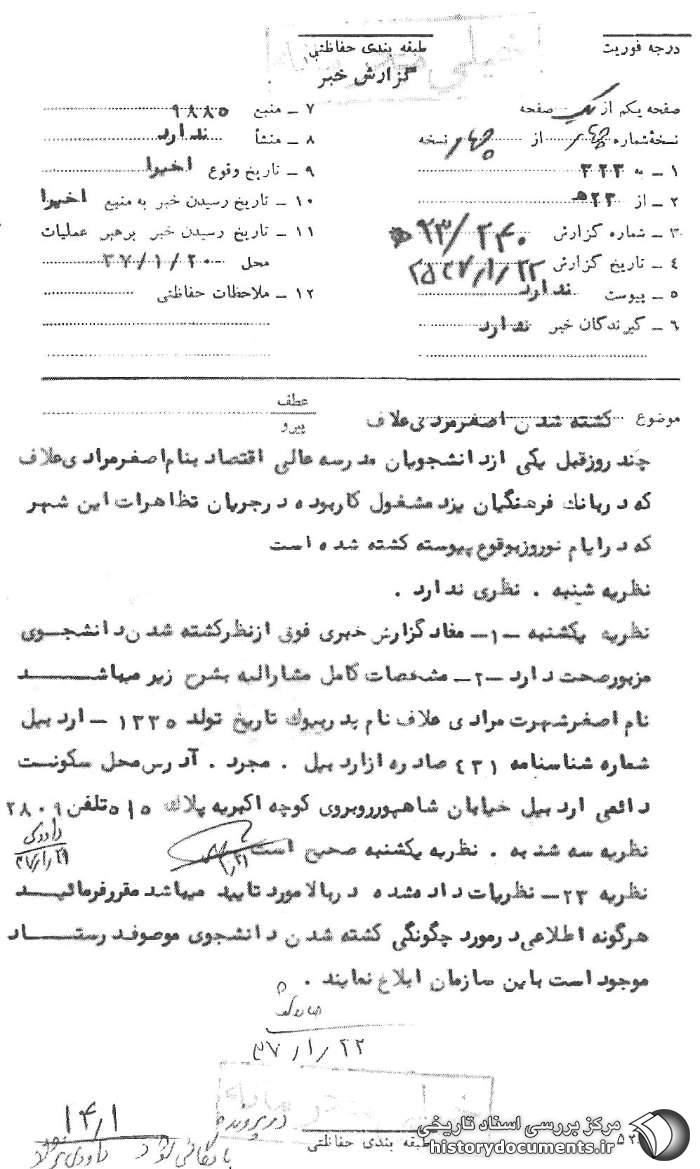 درجه فوریت
طبقه بندی حفاظتی
خیلی محرمانه
گزارش خبر
صفحه یکم از یک صفحه
نسخه شماره چهار از چهار نسخه
۱ ـ به ۳۲۳
۲ ـ از ۲۳ﻫ
۳ ـ شماره گزارش ۹۳/۲۴۰ﻫ
۴ ـ تاریخ گزارش ۲۵۳۷/۱/۲۲
۵ ـ پیوست ندارد
۶ ـ گیرندگان خبر ندارد
۷ ـ منبع ۹۸۸۵
۸ ـ منشأ ندارد
۹ ـ تاریخ وقوع اخیرا
۱۰ ـ تاریخ رسیدن خبر به منبع اخیرا
۱۱ ـ تاریخ رسیدن خبر برهبر عملیات
محل ۳۷/۱/۲۰
۱۲ ـ ملاحظات حفاظتی
موضوع کشته شدن اصغرمرادی علاف
عطف
پیرو
چند روزقبل یکی ازدانشجویان مدرسه عالی اقتصاد بنام اصغرمرادی علاف
که دربانک فرهنگیان یزد مشغول کاربوده درجریان تظاهرات این شهر
که درایام نوروزبوقوع پیوسته کشته شده است
نظریه شنبه . نظری ندارد .
نظریه یکشنبه ـ۱ـ مفاد گزارش خبری فوق ازنظرکشته شدن دانشجوی
مزبورصحت دارد ـ۲ـ مشخصات کامل مشارالیه بشرح زیر میباشد
نام اصغرشهرت مرادی علاف نام پدربیوک تاریخ تولد ۱۳۳۵ ـ اردبیل
شماره شناسنامه ۴۳۱ صادره ازاردبیل . مجرد . آدرس محل سکونت
دائمی اردبیل خیابان شاهپورروبروی کوچه اکبریه پلاک ۵۱۵ تلفن ۲۸۰۹
نظریه سه شنبه . نظریه یکشنبه صحیح است
داودی
۳۷/۱/۲۱
نظریه ۲۳ـ نظریات داده شده دربالا مورد تایید میباشد مقررفرمائید
هرگونه اطلاعی درمورد چگونگی کشته شدن دانشجوی موصوف درستاد
موجود است باین سازمان ابلاغ نمایند .
۳۷/۱/۲۲
طبقه بندی حفاظتی
در پرونده
بایگانی شود
۱۴/۱
مرکز بررسی اسناد تاریخی
historydocuments.ir